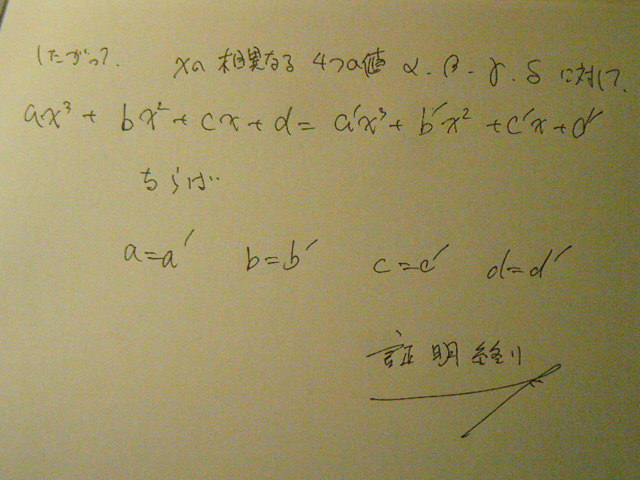 したがって、 xの相異なる4つの値 α、β、γ、δ に対して、
ax³ + bx² + cx + d = a′x³ + b′x² + c′x + d′
ならば
a=a′ b=b′ c=c′ d=d′
証明終り